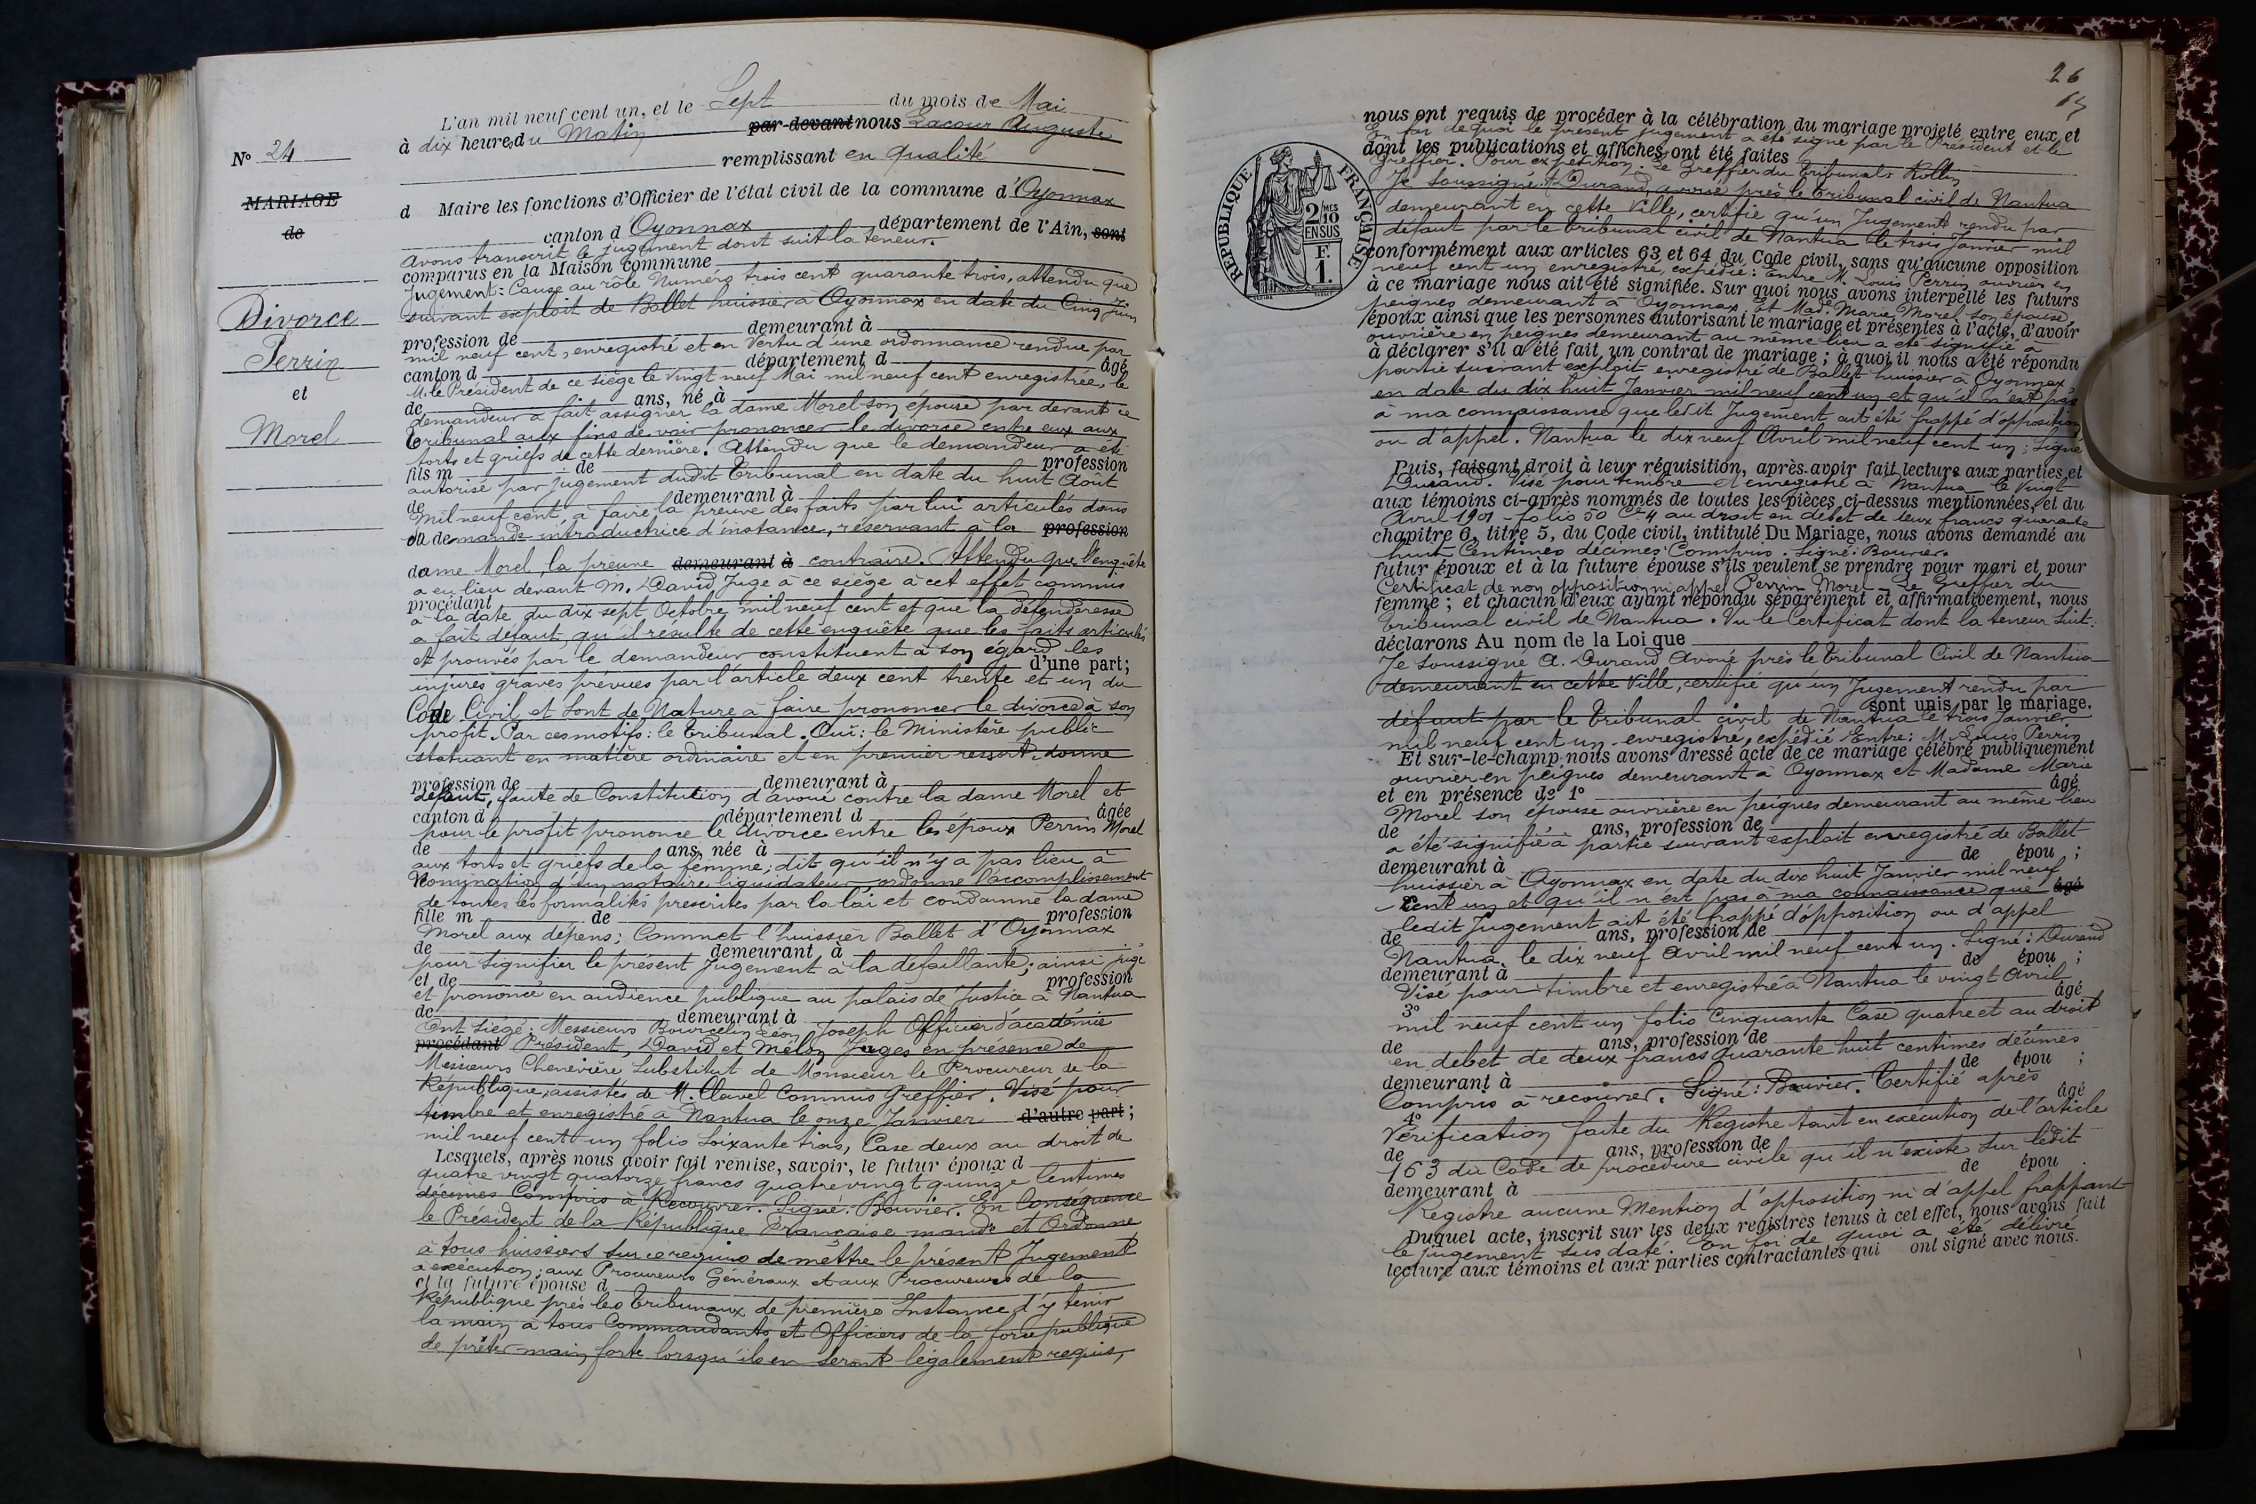 L'an mil neuf cent un, et le Sept du mois de Mai
à dix heures du Matin par-devant nous Lacour Auguste
N° 24
remplissant en qualité
MARIAGE
de
d Maire les fonctions d'Officier de l'état civil de la commune d'Oyonnax
canton d'Oyonnax département de l'Ain, sont
avons transcrit le jugement dont suit la teneur.
comparus en la Maison commune
Jugement: Cause au rôle Numéro trois cent quarante trois, attendu que
suivant exploit de Ballet huissier à Oyonnax en date du Cinq Juin
Divorce
Perrin
et
Morel
profession de demeurant à
mil neuf cent, enregistré et en vertu d'une ordonnance rendue par
canton d département d âgé
M. le Président de ce siège le vingt neuf Mai mil neuf cent enregistrée, le
de ans, né à
demandeur a fait assigner la dame Morel son épouse par devant ce
Tribunal aux fins de voir prononcer le divorce entre eux aux
torts et griefs de cette dernière. Attendu que le demandeur a été
fils m de profession
autorisé par jugement dudit Tribunal en date du huit Août
de demeurant à
Mil neuf cent, à faire la preuve des faits par lui articulés dans
sa demande introductrice d'instance, réservant à la profession
dame Morel, la preuve demeurant à contraire. Attendu que l'enquête
a eu lieu devant M. David Juge à ce siège à cet effet commis
procédant
à la date du dix sept Octobre mil neuf cent et que la défenderesse
a fait défaut, qu'il résulte de cette enquête que les faits articulés
et prouvés par le demandeur constituent à son égard les
d'une part;
injures graves prévues par l'article deux cent trente et un du
Code Civil et sont de Nature à faire prononcer le divorce à son
profit. Par ces motifs: le Tribunal. Ouï: le Ministère public
statuant en matière ordinaire et en premier ressort donne
profession de demeurant à
défaut, faute de Constitution d'avoué contre la dame Morel et
canton d département d âgée
pour le profit prononce le divorce entre les époux Perrin Morel
de ans, née à
aux torts et griefs de la femme; dit qu'il n'y a pas lieu à
Nomination d'un notaire liquidateur, ordonne l'accomplissement
de toutes les formalités prescrites par la loi et condamne la dame
fille m de profession
Morel aux dépens; Commet l'huissier Ballet d'Oyonnax
de demeurant à
pour signifier le présent Jugement à la défaillante; ainsi jugé
et de profession
et prononcé en audience publique au palais de Justice à Nantua
de demeurant à
Ont siégé: Messieurs Bourcelin Léon, Joseph Officier d'académie
procédant Président, David et Mélon Juges en présence de
Messieurs Chenevière Substitut de Monsieur le Procureur de la
République, assistés de M. Clavel Commis Greffier. Visé pour
timbre et enregistré à Nantua le onze Janvier d'autre part;
mil neuf cent un folio Soixante trois, Case deux au droit de
Lesquels, après nous avoir fait remise, savoir, le futur époux d
quatre vingt quatorze francs quatrevingt quinze Centimes
décimes Compris à Recouvrer. Signé: Bouvier. En Conséquence
le Président de la République Française mande et Ordonne
à tous huissiers sur ce requis de mettre le présent Jugement
à exécution; aux Procureurs Généraux et aux Procureurs de la
et la future épouse d
République près les Tribunaux de première Instance d'y tenir
la main à tous Commandants et Officiers de la force publique
de prêter main forte lorsqu'ils en seront légalement requis,
26
nous ont requis de procéder à la célébration du mariage projeté entre eux, et
En foi de quoi le présent jugement a été signé par le Président et le
dont les publications et affiches ont été faites
Greffier. Pour expédition. Le Greffier du Tribunal: Rollin
Je soussigné A. Durand avoué près le Tribunal civil de Nantua
demeurant en cette Ville, certifie qu'un Jugement rendu par
défaut par le tribunal civil de Nantua le trois Janvier mil
RÉPUBLIQUE FRANÇAISE
2 MES 10 EN SUS
F. 1.
conformément aux articles 63 et 64 du Code civil, sans qu'aucune opposition
neuf cent un enregistré, expédié: Entre M. Louis Perrin ouvrier en
à ce mariage nous ait été signifiée. Sur quoi nous avons interpellé les futurs
peignes demeurant à Oyonnax et Mad. Marie Morel son épouse
époux ainsi que les personnes autorisant le mariage et présentes à l'acte, d'avoir
ouvrière en peignes demeurant au même lieu a été signifié à
à déclarer s'il a été fait un contrat de mariage; à quoi il nous a été répondu
partie suivant exploit enregistré de Ballet huissier à Oyonnax
en date du dix huit Janvier mil neuf cent un et qu'il n'est pas
à ma connaissance que ledit Jugement ait été frappé d'opposition
ou d'appel. Nantua le dix neuf Avril mil neuf cent un: Signé
Puis, faisant droit à leur réquisition, après avoir fait lecture aux parties et
Durand. Visé pour timbre et enregistré à Nantua le Vingt
aux témoins ci-après nommés de toutes les pièces ci-dessus mentionnées, et du
Avril 1901 - folio 50 Ce 4 au droit en débet de deux francs quarante
chapitre 6, titre 5, du Code civil, intitulé Du Mariage, nous avons demandé au
huit Centimes décimes Compris. Signé: Bouvier.
futur époux et à la future épouse s'ils veulent se prendre pour mari et pour
Certificat de non opposition ni appel Perrin Morel - Le Greffier du
femme; et chacun d'eux ayant répondu séparément et affirmativement, nous
Tribunal civil de Nantua. Vu le Certificat dont la teneur suit:
déclarons Au nom de la Loi que
Je soussigné A. Durand Avoué près le Tribunal Civil de Nantua
demeurant en cette Ville, certifie qu'un Jugement rendu par
sont unis par le mariage.
défaut par le Tribunal civil de Nantua le trois Janvier
mil neuf cent un enregistré, expédié Entre: M. Louis Perrin
Et sur-le-champ nous avons dressé acte de ce mariage célébré publiquement
ouvrier en peignes demeurant à Oyonnax et Madame Marie
et en présence de 1° âgé
Morel son épouse ouvrière en peignes demeurant au même lieu
de ans, profession de
a été signifié à partie suivant exploit enregistré de Ballet
demeurant à de épou ;
huissier à Oyonnax en date du dix huit Janvier mil neuf
Cent un et qu'il n'est pas à ma connaissance que âgé
ledit Jugement ait été frappé d'opposition ou d'appel
de ans, profession de
Nantua, le dix neuf Avril mil neuf cent un. Signé: Durand
demeurant à de épou ;
Visé pour timbre et enregistré à Nantua le vingt Avril
3° âgé
mil neuf cent un folio Cinquante Case quatre et au droit
de ans, profession de
en débet de deux francs quarante huit centimes décimes
demeurant à de épou ;
Compris à recouvrer. Signé: Bouvier. Certifié après
4° âgé
Vérification faite du Registre tout en exécution de l'article
de ans, profession de
163 du Code de procédure civile qu'il n'existe sur ledit
demeurant à de épou .
Registre aucune Mention d'opposition ni d'appel frappant
Duquel acte, inscrit sur les deux registres tenus à cet effet, nous avons fait
le jugement sus daté. En foi de quoi a été délivré
lecture aux témoins et aux parties contractantes qui ont signé avec nous.